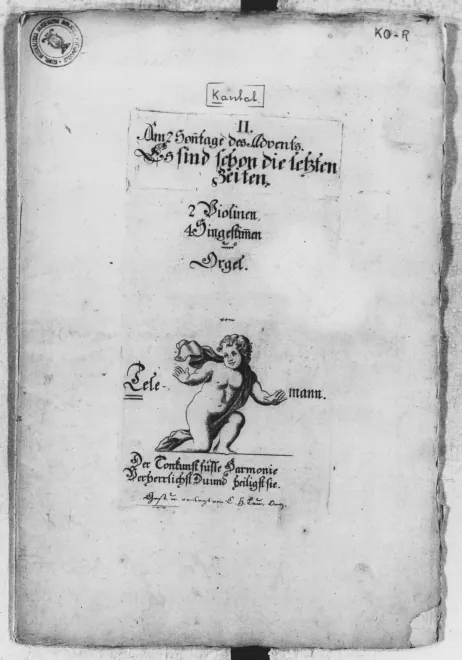 KO-R
Kantat.
II.
Am 2 Son̄tage des Advents.
Es sind schon die letzten
Zeiten.
2 Violinen,
4 Singestim̄en
u.
Orgel.
von
Tele-
mann.
Der Tonkunst süsse Harmonie
Verherrlichst Du und heiligst sie.